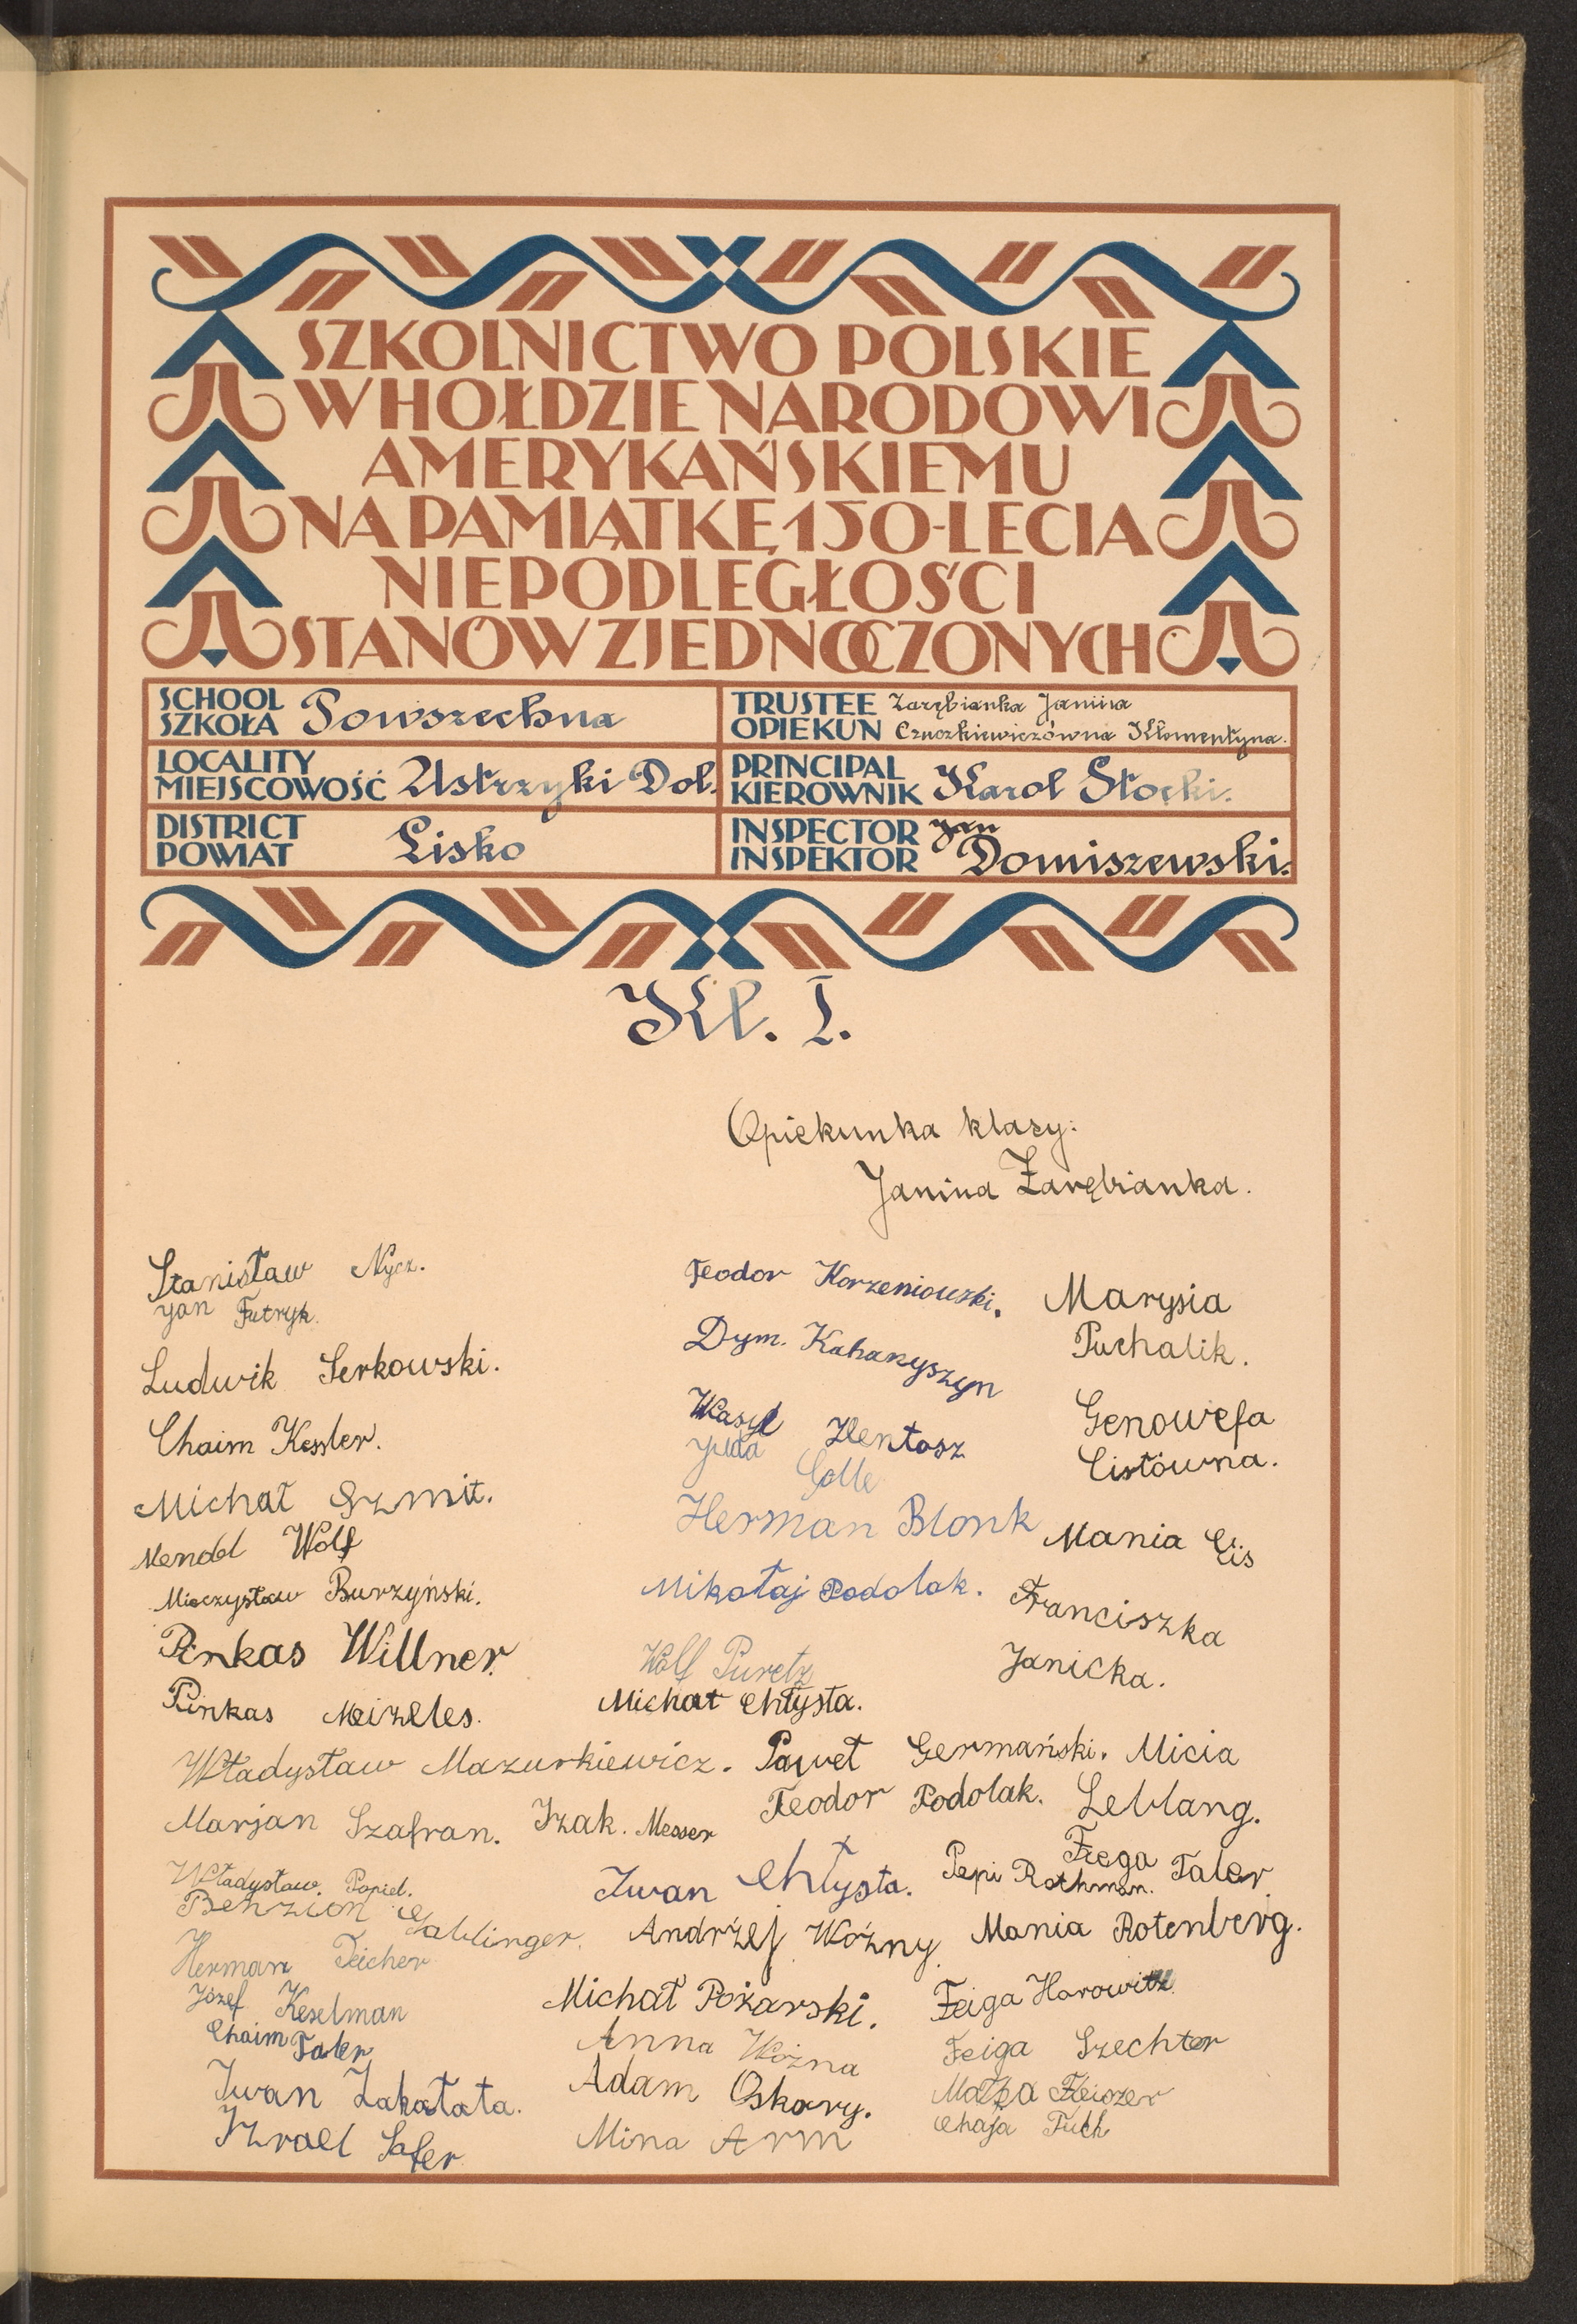 SZKOLNICTWO POLSKIE
W HOŁDZIE NARODOWI
AMERYKAŃSKIEMU
NA PAMIĄTKĘ 150-LECIA
NIEPODLEGŁOŚCI
STANÓW ZJEDNOCZONYCH
SCHOOL
SZKOŁA Powszechna
TRUSTEE Zarębianka Janina
OPIEKUN Czuczkiewiczówna Klementyna.
LOCALITY
MIEJSCOWOŚĆ Ustrzyki Dol.
PRINCIPAL
KIEROWNIK Karol Stocki.
DISTRICT
POWIAT Lisko
INSPECTOR Jan
INSPEKTOR Domiszewski.
Kl. I.
Opiekunka klasy:
Janina Zarębianka.
Stanisław Nycz.
Jan Futryk.
Ludwik Serkowski.
Chaim Kessler.
Michał Szmit.
Mendel Wolf
Mieczysław Burzyński.
Pinkas Willner
Pinkas Meizeles.
Władysław Mazurkiewicz.
Marjan Szafran.
Izak. Messer
Władysław Popiel.
Benzion Gablinger.
Herman Teicher
Józef Keselman
Chaim Taler
Iwan Zakałata.
Izrael Safer
Teodor Korzeniowski.
Dym. Kahanyszyn
Wasyl Hentosz
Juda
Herman Blonk
Mikołaj Podolak.
Wolf Puretz
Michał Chłysta.
Paweł Germański.
Teodor Podolak.
Iwan Chłysta.
Andrzej Woźny
Michał Pożarski.
Anna Woźna
Adam Oskory.
Mina Arm
Marysia
Puchalik.
Genowefa
Cistówna.
Mania Lis
Franciszka
Janicka.
Micia
Leblang.
Fega Taler
Pepi Rothman.
Mania Rotenberg.
Feiga Horowitz
Feiga Szechter
Chaja Fuch